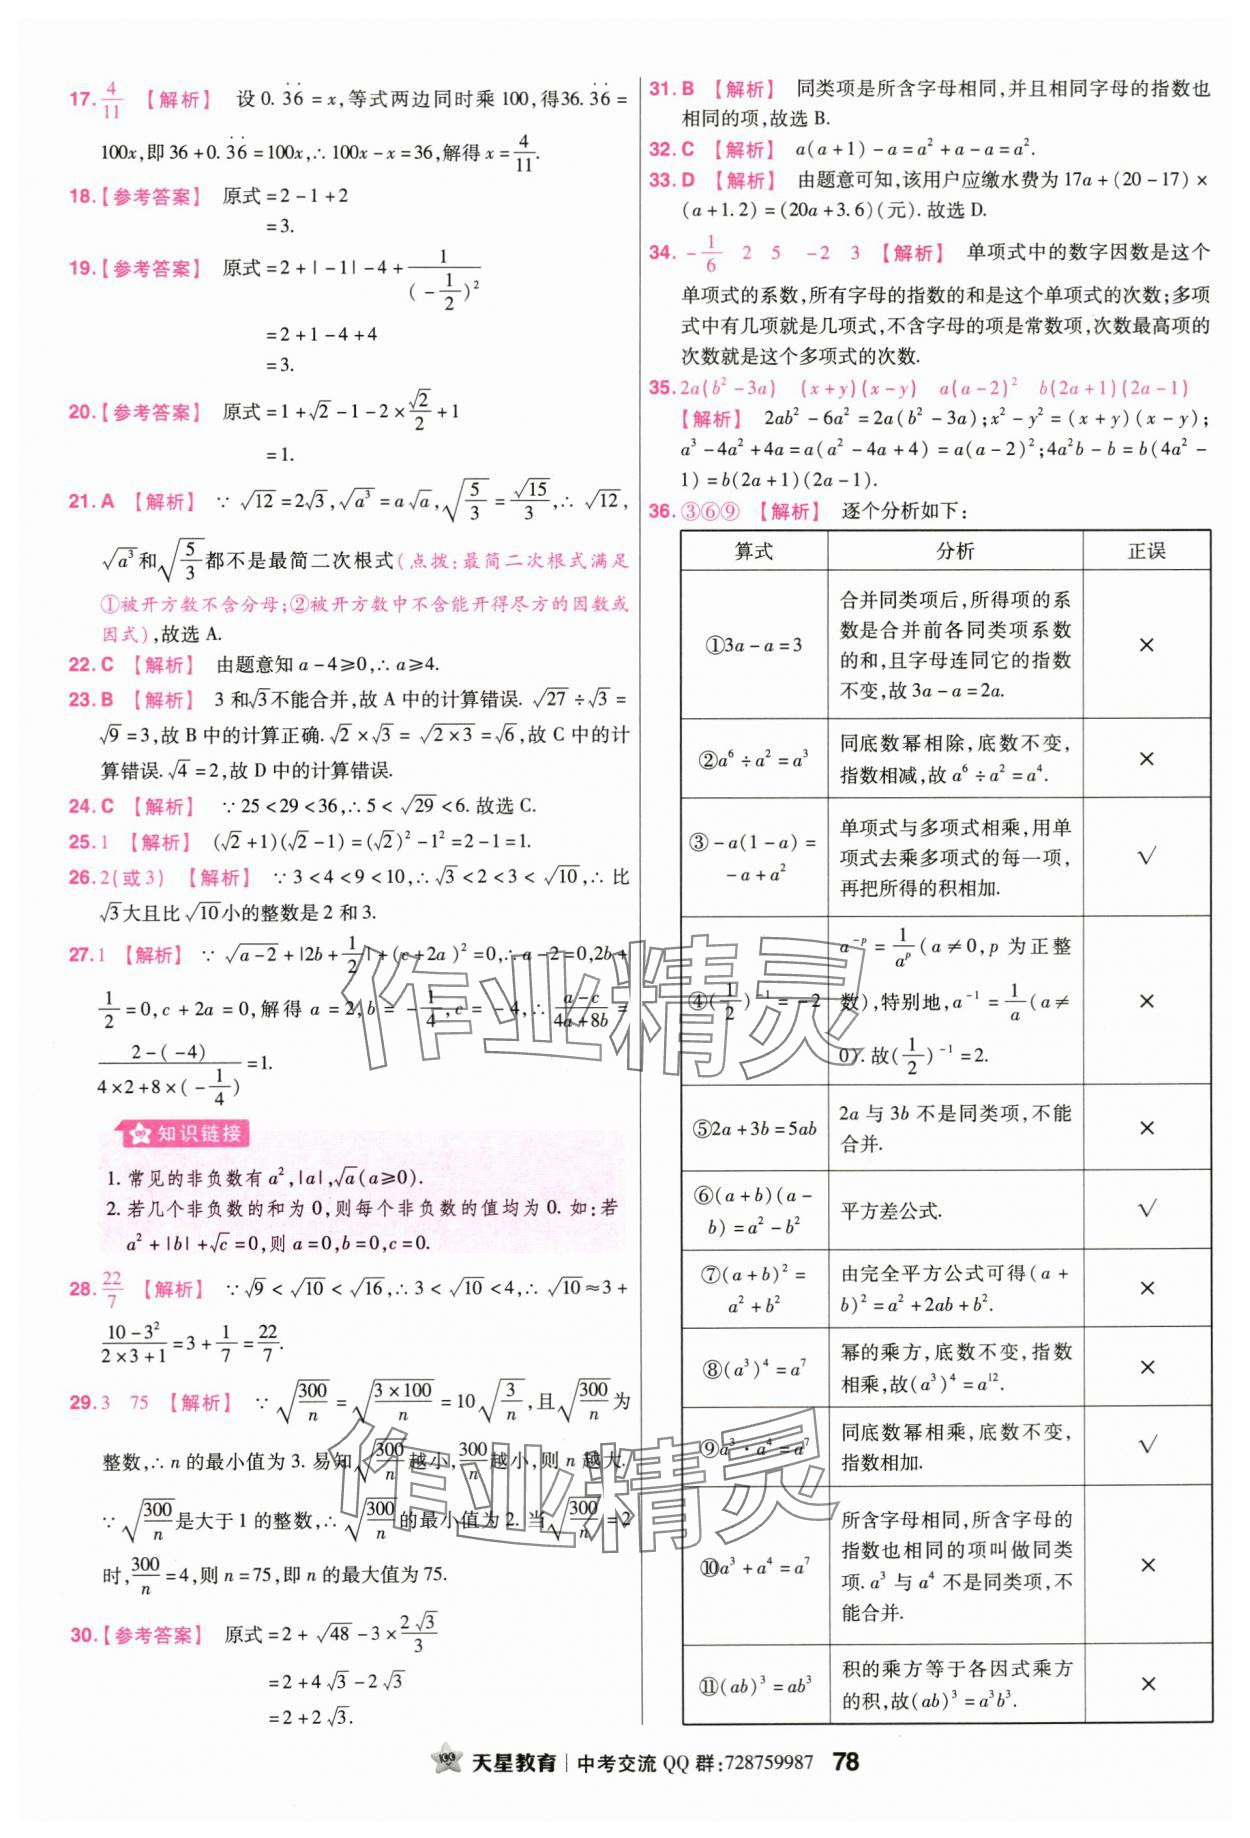 17. 4/11 【解析】 设 0.3̇6̇ = x,等式两边同时乘 100,得36.3̇6̇ =
100x,即 36 + 0.3̇6̇ = 100x,∴ 100x - x = 36,解得 x = 4/11.
18.【参考答案】 原式 = 2 - 1 + 2
= 3.
19.【参考答案】 原式 = 2 + | - 1| - 4 + 1/( - 1/2)²
= 2 + 1 - 4 + 4
= 3.
20.【参考答案】 原式 = 1 + √2 - 1 - 2 × √2/2 + 1
= 1.
21. A 【解析】 ∵ √12 = 2√3,√a³ = a√a,√(5/3) = √15/3,∴ √12,
√a³和√(5/3)都不是最简二次根式(点拨:最简二次根式满足
①被开方数不含分母;②被开方数中不含能开得尽方的因数或
因式),故选 A.
22. C 【解析】 由题意知 a - 4 ≥ 0,∴ a ≥ 4.
23. B 【解析】 3 和√3不能合并,故 A 中的计算错误. √27 ÷ √3 =
√9 = 3,故 B 中的计算正确. √2 × √3 = √(2 × 3) = √6,故 C 中的计
算错误. √4 = 2,故 D 中的计算错误.
24. C 【解析】 ∵ 25 < 29 < 36,∴ 5 < √29 < 6. 故选 C.
25. 1 【解析】 (√2 + 1)(√2 - 1) = (√2)² - 1² = 2 - 1 = 1.
26. 2(或 3) 【解析】 ∵ 3 < 4 < 9 < 10,∴ √3 < 2 < 3 < √10,∴ 比
√3大且比√10小的整数是 2 和 3.
27. 1 【解析】 ∵ √(a - 2) + |2b + 1/2| + (c + 2a)² = 0,∴ a - 2 = 0,2b +
1/2 = 0,c + 2a = 0,解得 a = 2,b = - 1/4,c = - 4,∴ (a - c)/(4a + 8b) =
(2 - ( - 4))/(4 × 2 + 8 × ( - 1/4)) = 1.
知识链接
1. 常见的非负数有 a²,|a|,√a(a ≥ 0).
2. 若几个非负数的和为 0,则每个非负数的值均为 0. 如:若
a² + |b| + √c = 0,则 a = 0,b = 0,c = 0.
28. 22/7 【解析】 ∵ √9 < √10 < √16,∴ 3 < √10 < 4,∴ √10 ≈ 3 +
(10 - 3²)/(2 × 3 + 1) = 3 + 1/7 = 22/7.
29. 3 75 【解析】 ∵ √(300/n) = √((3 × 100)/n) = 10√(3/n),且√(300/n)为
整数,∴ n 的最小值为 3. 易知√(300/n)越小,300/n越小,则 n 越大.
∵ √(300/n)是大于 1 的整数,∴ √(300/n)的最小值为 2. 当√(300/n) = 2
时,300/n = 4,则 n = 75,即 n 的最大值为 75.
30.【参考答案】 原式 = 2 + √48 - 3 × 2√3/3
= 2 + 4√3 - 2√3
= 2 + 2√3.
31. B 【解析】 同类项是所含字母相同,并且相同字母的指数也
相同的项,故选 B.
32. C 【解析】 a(a + 1) - a = a² + a - a = a².
33. D 【解析】 由题意可知,该用户应缴水费为 17a + (20 - 17) ×
(a + 1.2) = (20a + 3.6)(元). 故选 D.
34. - 1/6 2 5 - 2 3 【解析】 单项式中的数字因数是这个
单项式的系数,所有字母的指数的和是这个单项式的次数;多项
式中有几项就是几项式,不含字母的项是常数项,次数最高项的
次数就是这个多项式的次数.
35. 2a(b² - 3a) (x + y)(x - y) a(a - 2)² b(2a + 1)(2a - 1)
【解析】 2ab² - 6a² = 2a(b² - 3a);x² - y² = (x + y)(x - y);
a³ - 4a² + 4a = a(a² - 4a + 4) = a(a - 2)²;4a²b - b = b(4a² -
1) = b(2a + 1)(2a - 1).
36. ③⑥⑨ 【解析】 逐个分析如下:
算式 分析 正误
①3a - a = 3 合并同类项后,所得项的系
数是合并前各同类项系数
的和,且字母连同它的指数
不变,故 3a - a = 2a. ×
②a⁶ ÷ a² = a³ 同底数幂相除,底数不变,
指数相减,故 a⁶ ÷ a² = a⁴. ×
③ - a(1 - a) =
- a + a² 单项式与多项式相乘,用单
项式去乘多项式的每一项,
再把所得的积相加. √
④(1/2)⁻¹ = - 2 a⁻ᵖ = 1/aᵖ(a ≠ 0,p 为正整
数),特别地,a⁻¹ = 1/a(a ≠
0). 故(1/2)⁻¹ = 2. ×
⑤2a + 3b = 5ab 2a 与 3b 不是同类项,不能
合并. ×
⑥(a + b)(a -
b) = a² - b² 平方差公式. √
⑦(a + b)² =
a² + b² 由完全平方公式可得(a +
b)² = a² + 2ab + b². ×
⑧(a³)⁴ = a⁷ 幂的乘方,底数不变,指数
相乘,故(a³)⁴ = a¹². ×
⑨a³ · a⁴ = a⁷ 同底数幂相乘,底数不变,
指数相加. √
⑩a³ + a⁴ = a⁷ 所含字母相同,所含字母的
指数也相同的项叫做同类
项. a³ 与 a⁴ 不是同类项,不
能合并. ×
⑪(ab)³ = ab³ 积的乘方等于各因式乘方
的积,故(ab)³ = a³b³. ×
作业精灵
作业精灵
天星教育 | 中考交流 QQ 群:728759987 78